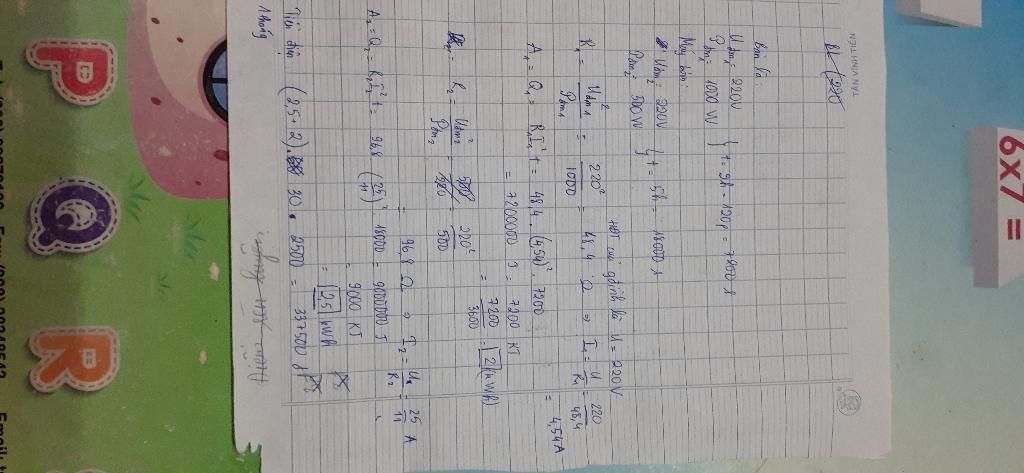 TÂN VINH TIẾN
Bàn là:
Uđm1 = 220V
Pđm1 = 1000 W } t = 2h = 120p = 7200 s
Máy bơm:
Uđm2 = 220V
Pđm2 = 500 W } t = 5h = 18000 s
R1 = Uđm1² / Pđm1 = 220² / 1000 = 48,4 Ω ⇒ I1 = U / R1 = 220 / 48,4 = 4,54A
A1 = Q1 = R1I1²t = 48,4 . (4,54)² . 7200
= 7200000 J = 7200 KJ
= 7200 / 3600 = 2 (kWh)
R2 = Uđm2² / Pđm2 = 220² / 500
= 96,8 Ω ⇒ I2 = U / R2 = 25 / 11 A
A2 = Q2 = R2I2²t = 96,8 (25/11)² . 18000 = 9000000 J
= 9000 KJ
= 2,5 kWh
Tiền điện 1 tháng
(2,5 + 2) . 30 . 2500 = 337500 đ
P
Q
R
6x7 =